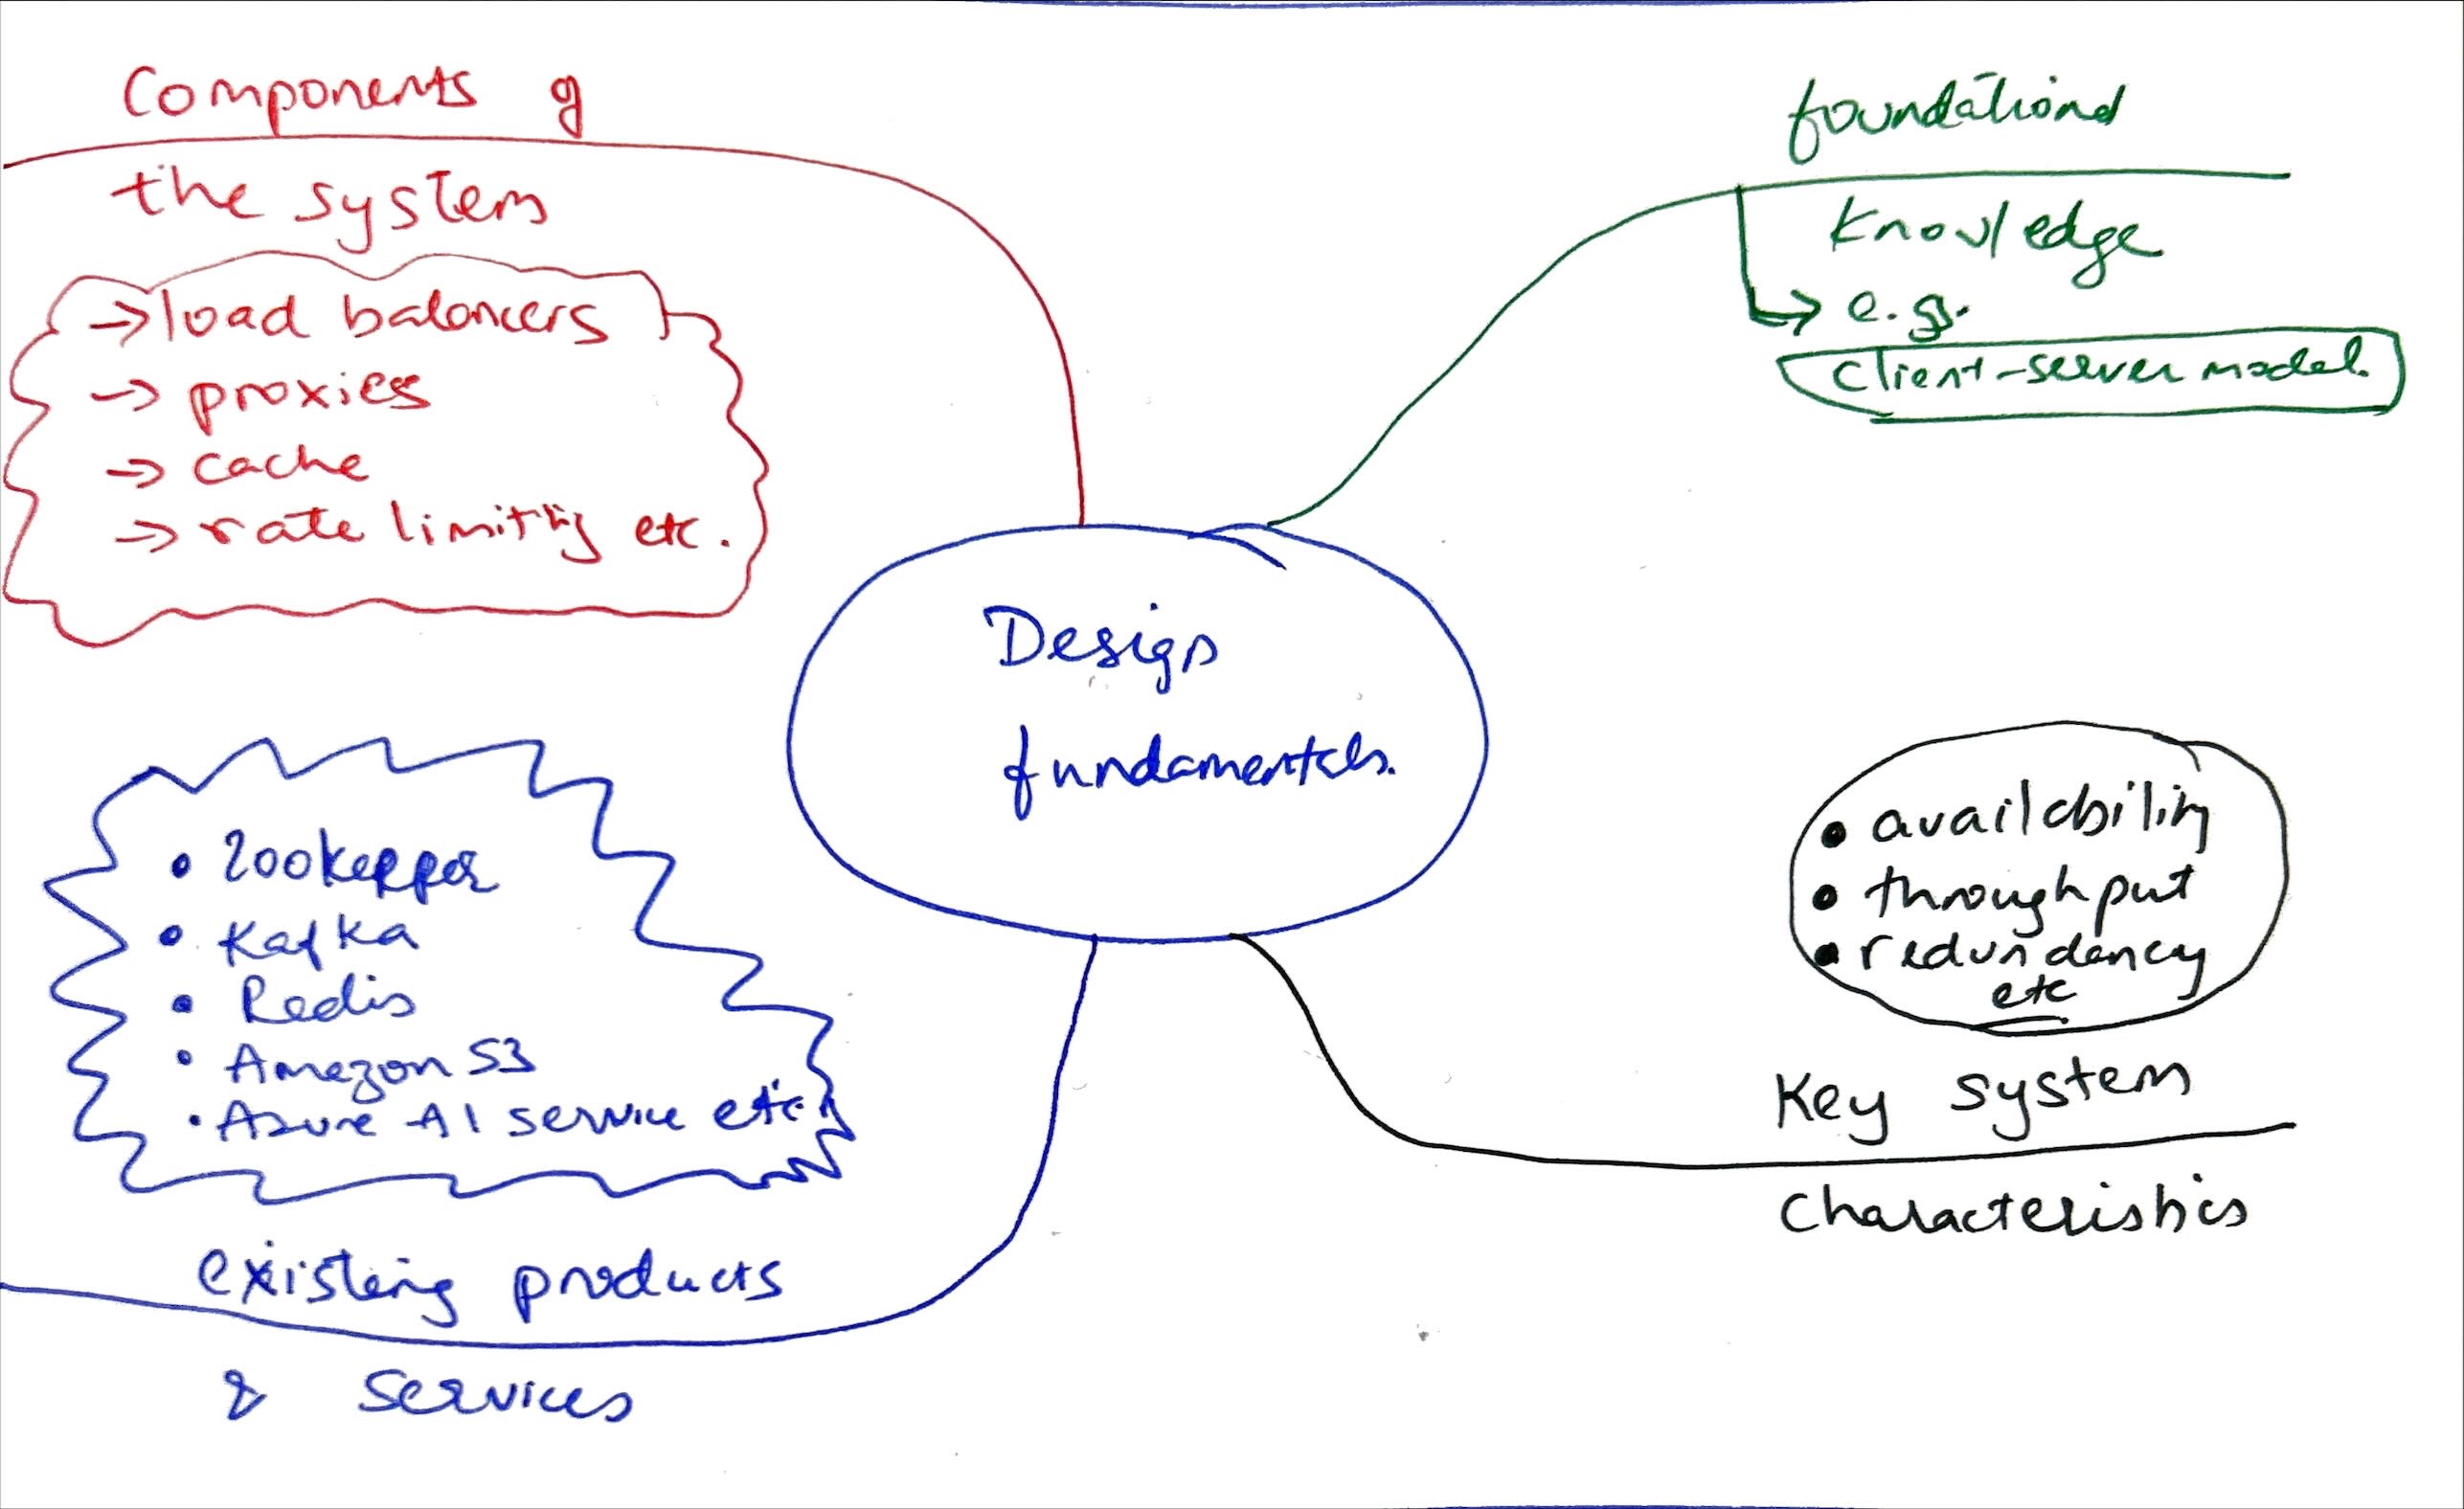 Components of
the system
→ load balancers
→ proxies
→ cache
→ rate limiting etc.
foundational
knowledge
↳ e.g.
client-server model.
Design
fundamentals.
• zookepper
• Kafka
• Redis
• Amazon S3
• Azure AI service etc.
existing products
& services
• availability
• throughput
• redundancy
etc
Key system
characteristics